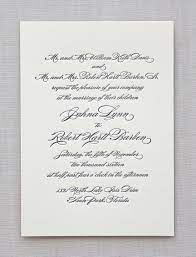 Mr. and Mrs. William Keith Davis
and
Mr. and Mrs. Robert Hartt Barten, Sr.
request the pleasure of your company
at the marriage of their children
Jahna Lynn
to
Robert Hartt Barten
Saturday, the fifth of November
at half past four o'clock in the afternoon
Winter Park, Florida